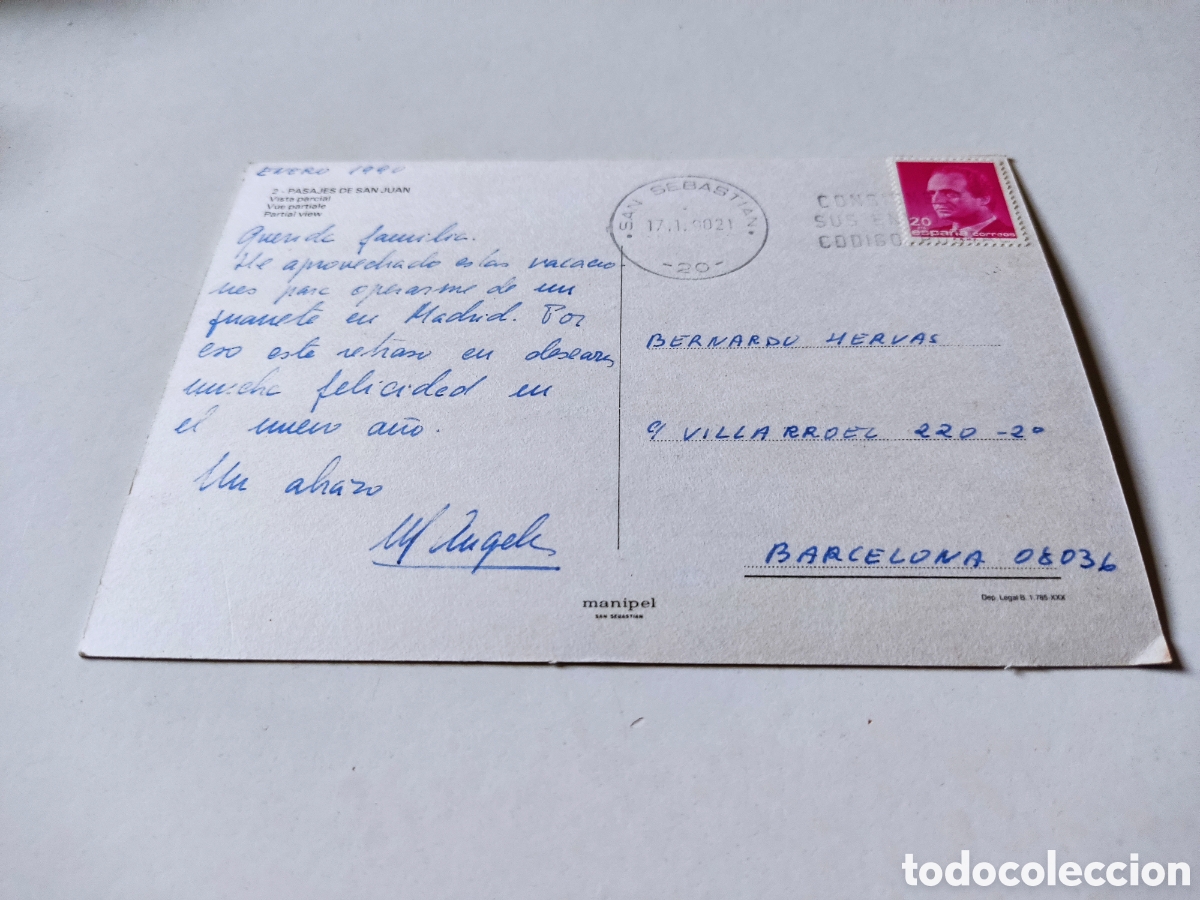 ENERO 1990
2 - PASAJES DE SAN JUAN
Vista parcial
Vue partiale
Partial view
Querida familia.
He aprovechado estas vacacio-
nes para operarme de un
juanete en Madrid. Por
eso este retraso en desearos
mucha felicidad en
el nuevo año.
Un abrazo
Mª Angeles
SAN SEBASTIAN
17.1.9021
-20-
CONS
SUS EN
CODIGO
20
españa correos
BERNARDO HERVAS
c/ VILLARROEL 220-2º
BARCELONA 08036
manipel
SAN SEBASTIAN
Dep. Legal B. 1.785-XXX
todocoleccion